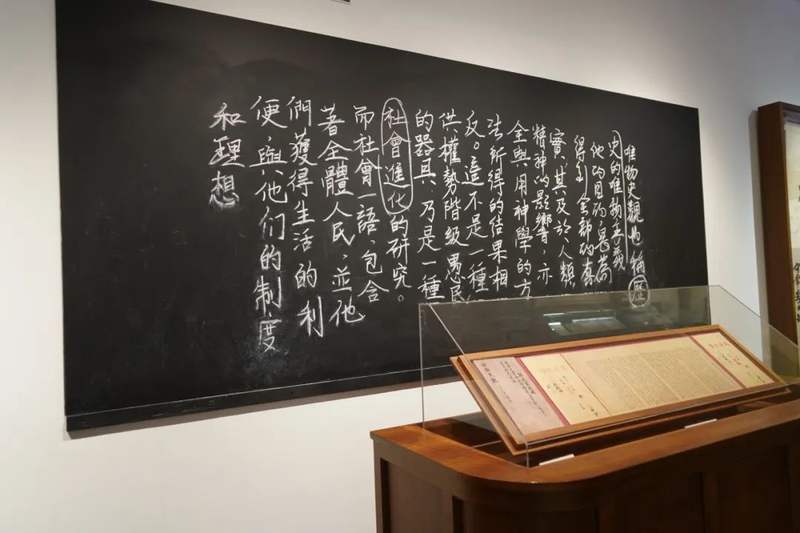 唯物史觀也稱歷
史的唯物主義
他的目的是為
得到全部的真
實、其及於人類
精神的影響、亦
全與用神學的方
法所得的结果相
反。這不是一種
供權勢階級愚民
的器具、乃是一種
社會進化的研究。
而社會一語、包含
著全體人民、並他
們獲得生活的利
便、與他们的制度
和理想